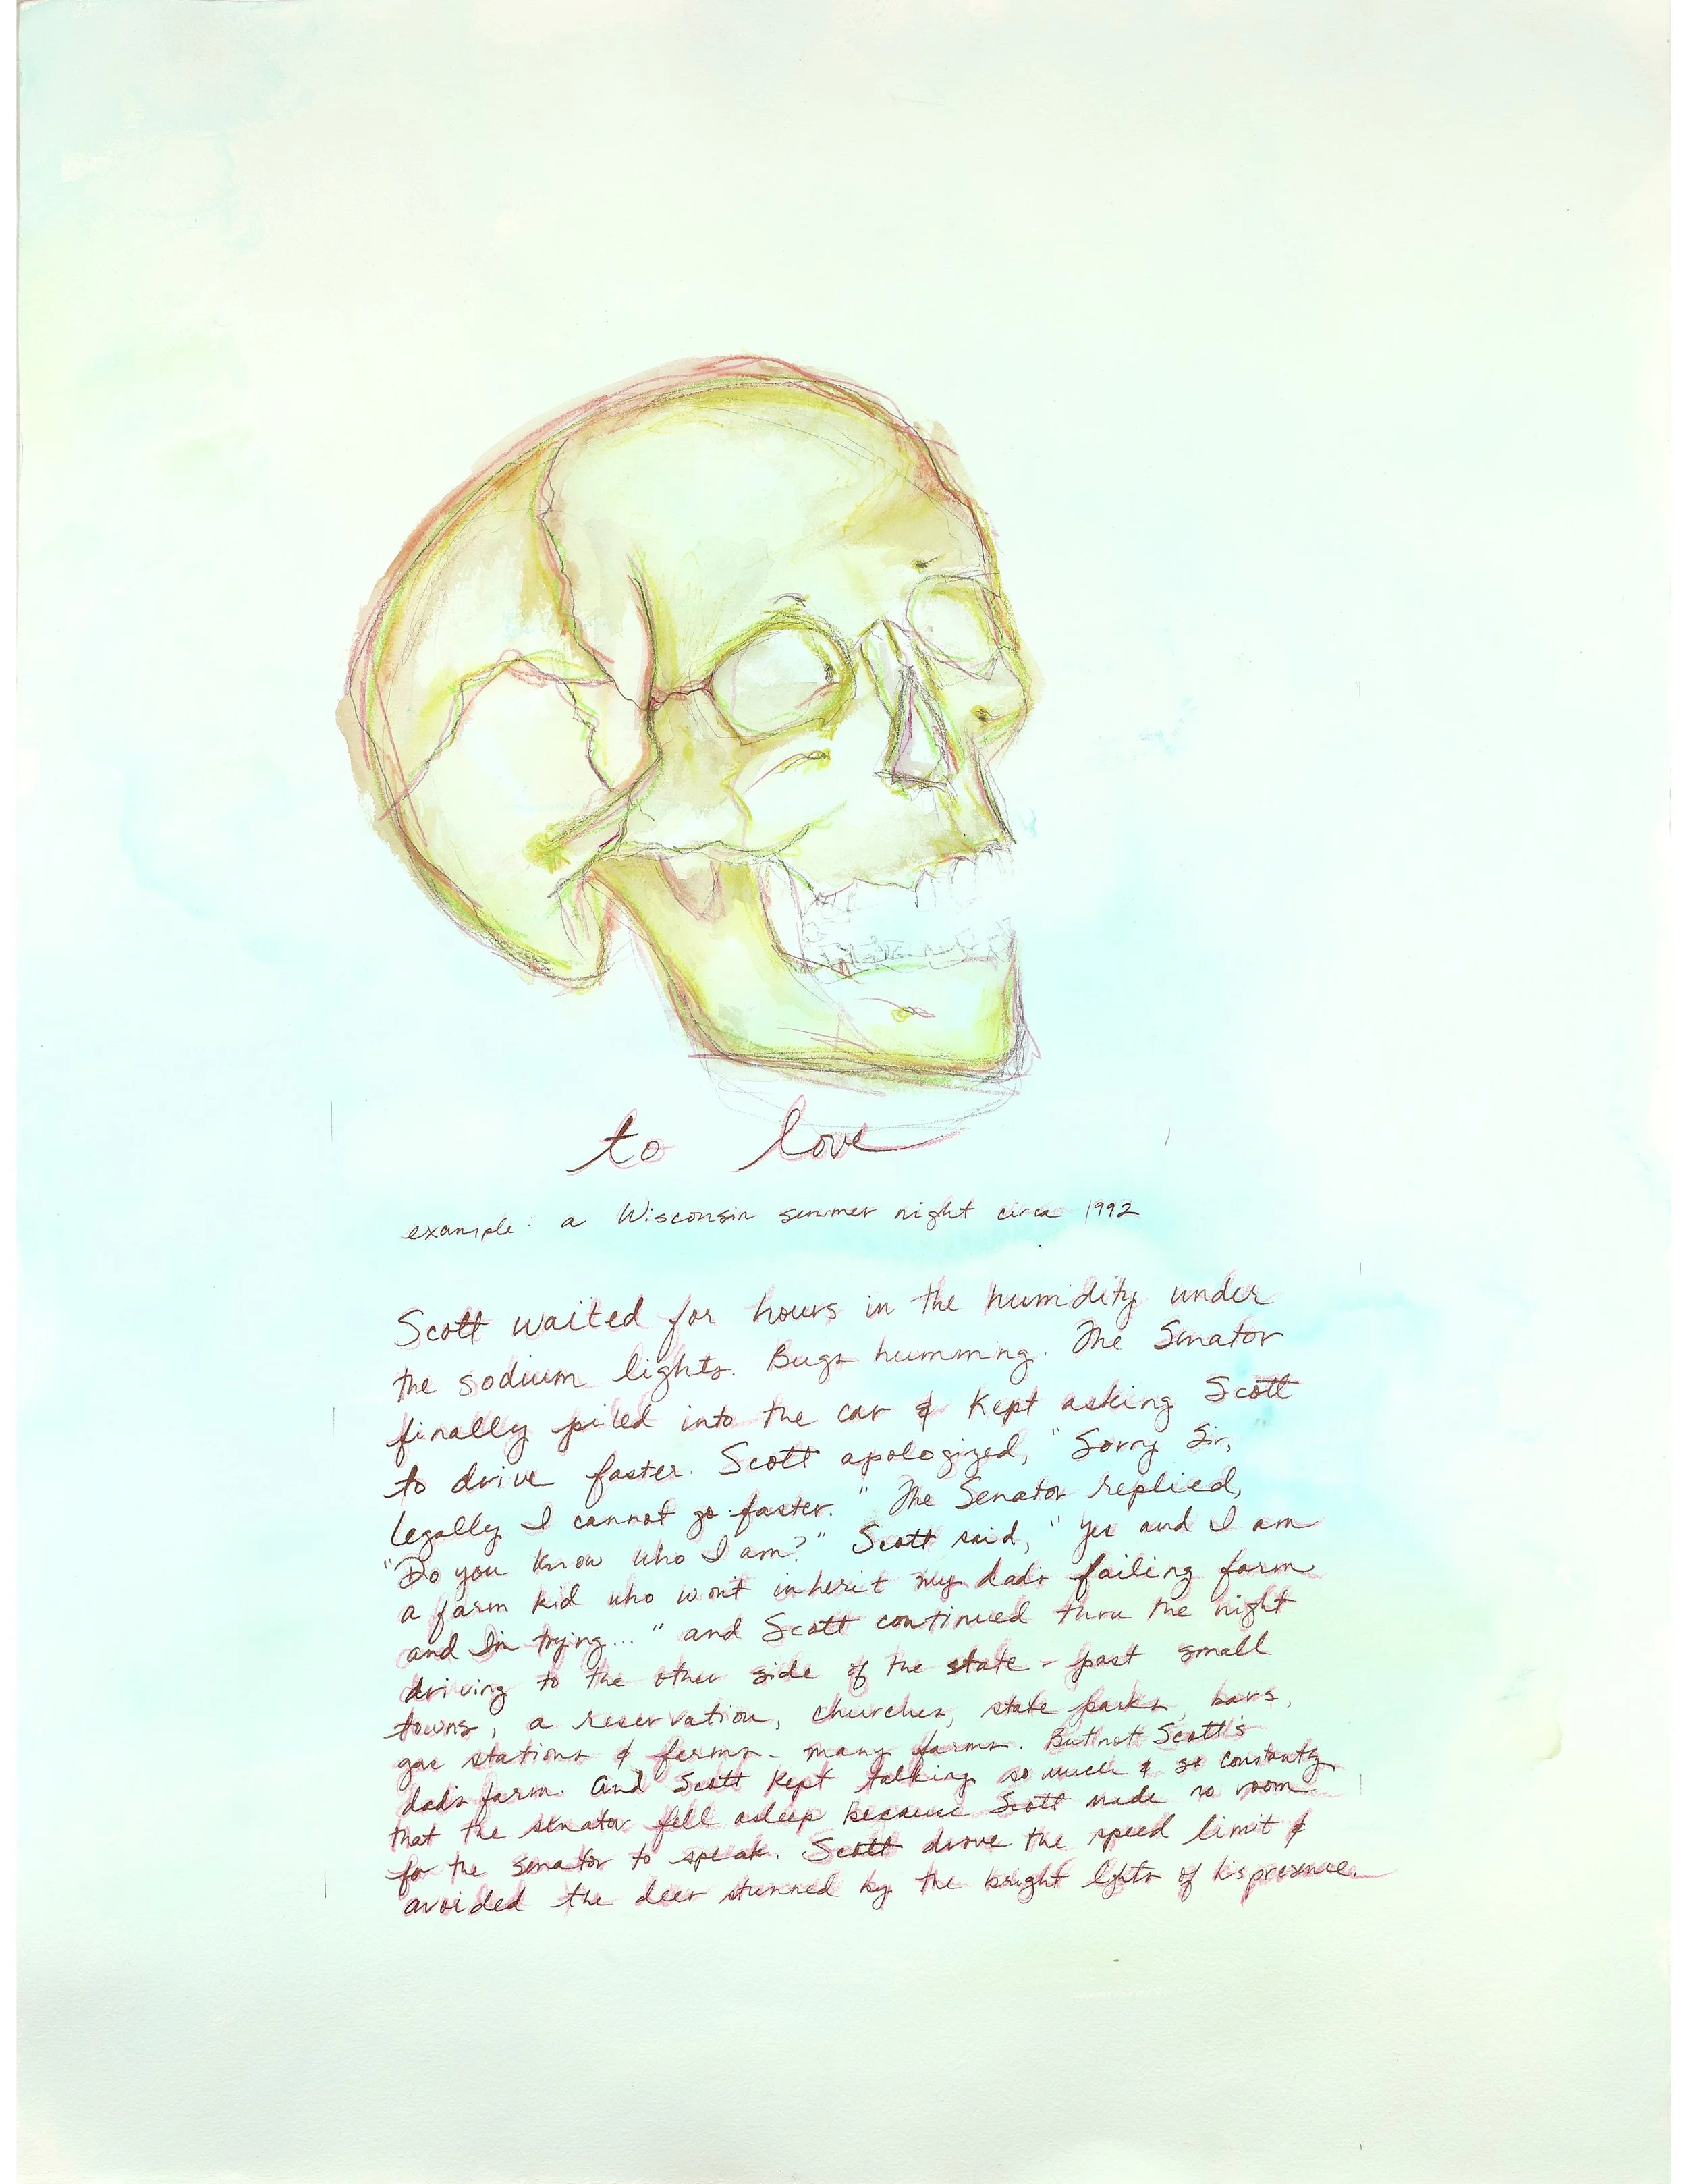 to love
example: a Wisconsin summer night circa 1992
Scott waited for hours in the humidity under
the sodium lights. Bugs humming. The Senator
finally piled into the car & kept asking Scott
to drive faster. Scott apologized, "Sorry Sir,
legally I cannot go faster." The Senator replied,
"Do you know who I am?" Scott said, "Yes and I am
a farm kid who won't inherit my dads failing farm
and I'm trying..." and Scott continued thru the night
driving to the other side of the state - past small
towns, a reservation, churches, state parks, bars,
gas stations & farms - many farms. But not Scott's
dads farm. And Scott kept talking so much & so constantly
that the senator fell asleep because Scott made no room
for the senator to speak. Scott drove the speed limit &
avoided the deer stunned by the bright lights of his presence.